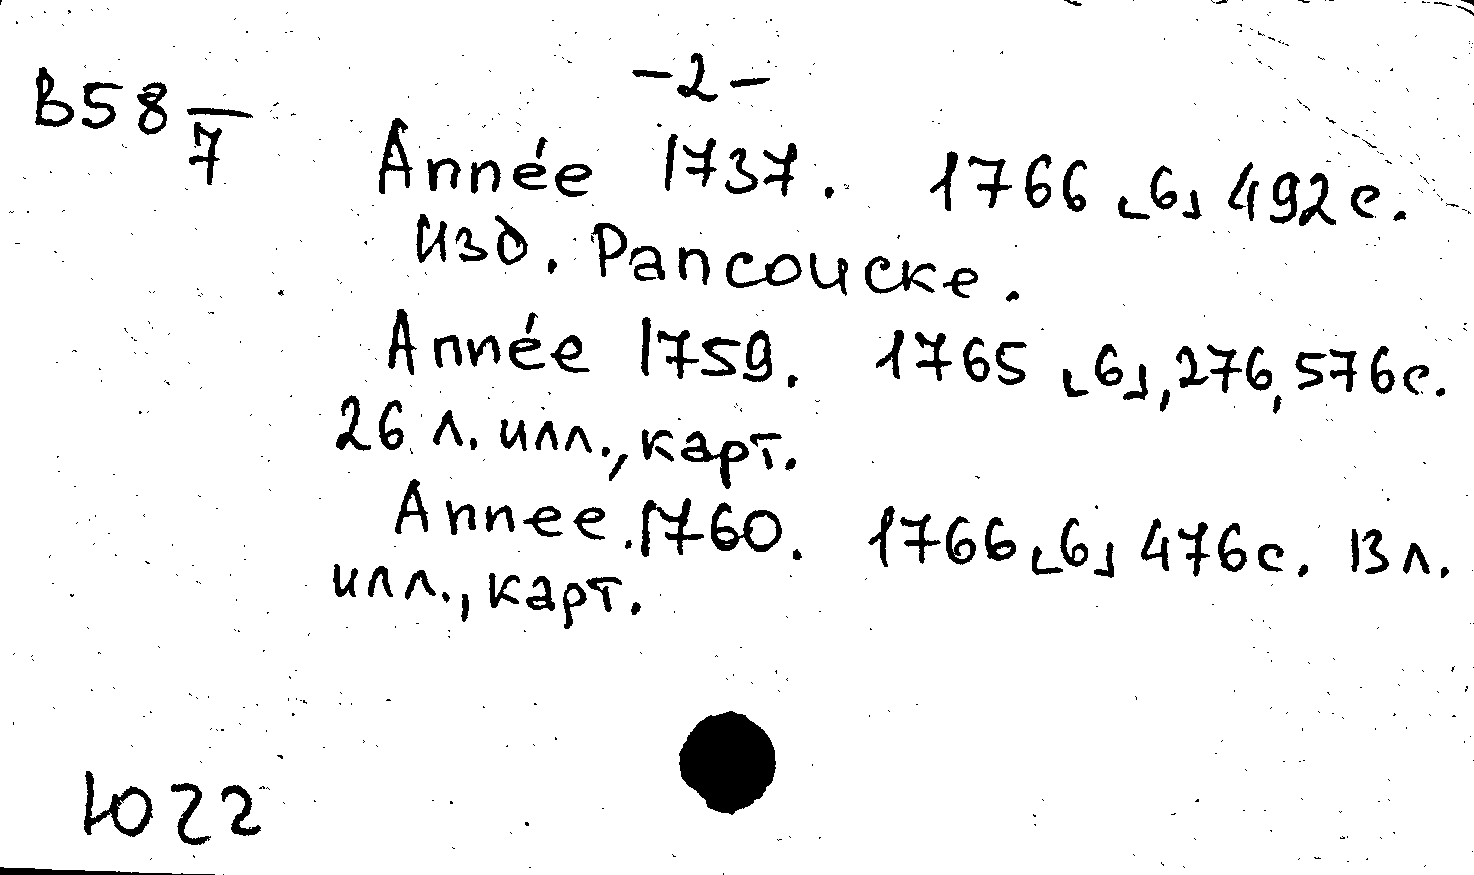 -2-
B58 7
Année 1737. 1766 [6] 492 с.
Изд. Pancoucke.
Année 1759. 1765 [6], 276, 576 с.
26 л. илл., карт.
Annee. 1760. 1766 [6] 476 с. 13 л.
илл., карт.
Ю22